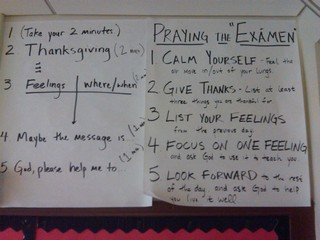 1 (Take your 2 minutes)
2 Thanksgiving (2 min)
3 Feelings | where/when
4 Maybe the message is ...
5 God, please help me to...
PRAYING THE "EXÁMEN"
1 CALM YOURSELF - Feel the
air move in/out of your lungs.
2 GIVE THANKS - List at least
three things you are thankful for
3 LIST YOUR FEELINGS
from the previous day.
4 FOCUS ON ONE FEELING
and ask God to use it to teach you
5 LOOK FORWARD to the rest
of the day and ask God to help
you live it well